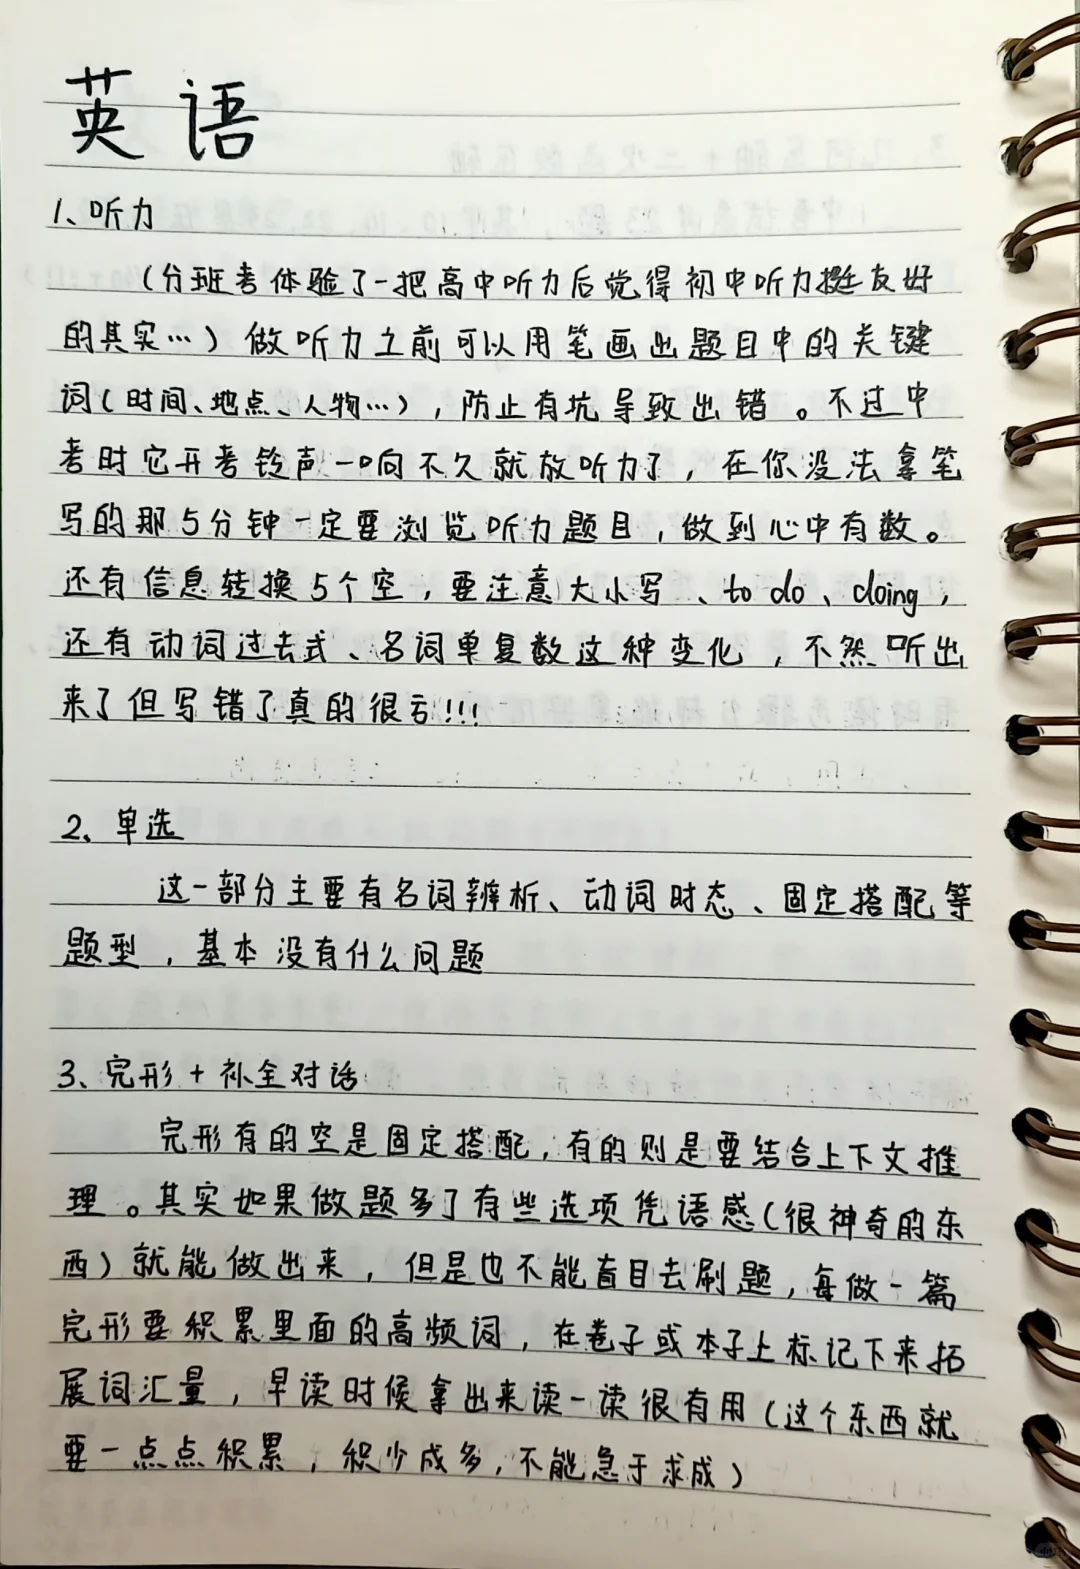 英语
1、听力
（分班考体验了一把高中听力后觉得初中听力挺友好
的其实…）做听力之前可以用笔画出题目中的关键
词（时间、地点、人物…），防止有坑导致出错。不过中
考时它开考铃声一响不久就放听力了，在你没法拿笔
写的那5分钟一定要浏览听力题目，做到心中有数。
还有信息转换5个空，要注意大小写、to do、doing，
还有动词过去式、名词单复数这种变化，不然听出
来了但写错了真的很亏!!!
2、单选
这一部分主要有名词辨析、动词时态、固定搭配等
题型，基本没有什么问题
3、完形+补全对话
完形有的空是固定搭配，有的则是要结合上下文推
理。其实如果做题多了有些选项凭语感（很神奇的东
西）就能做出来，但是也不能盲目去刷题，每做一篇
完形要积累里面的高频词，在卷子或本子上标记下来拓
展词汇量，早读时候拿出来读一读很有用（这个东西就
要一点点积累，积少成多，不能急于求成）